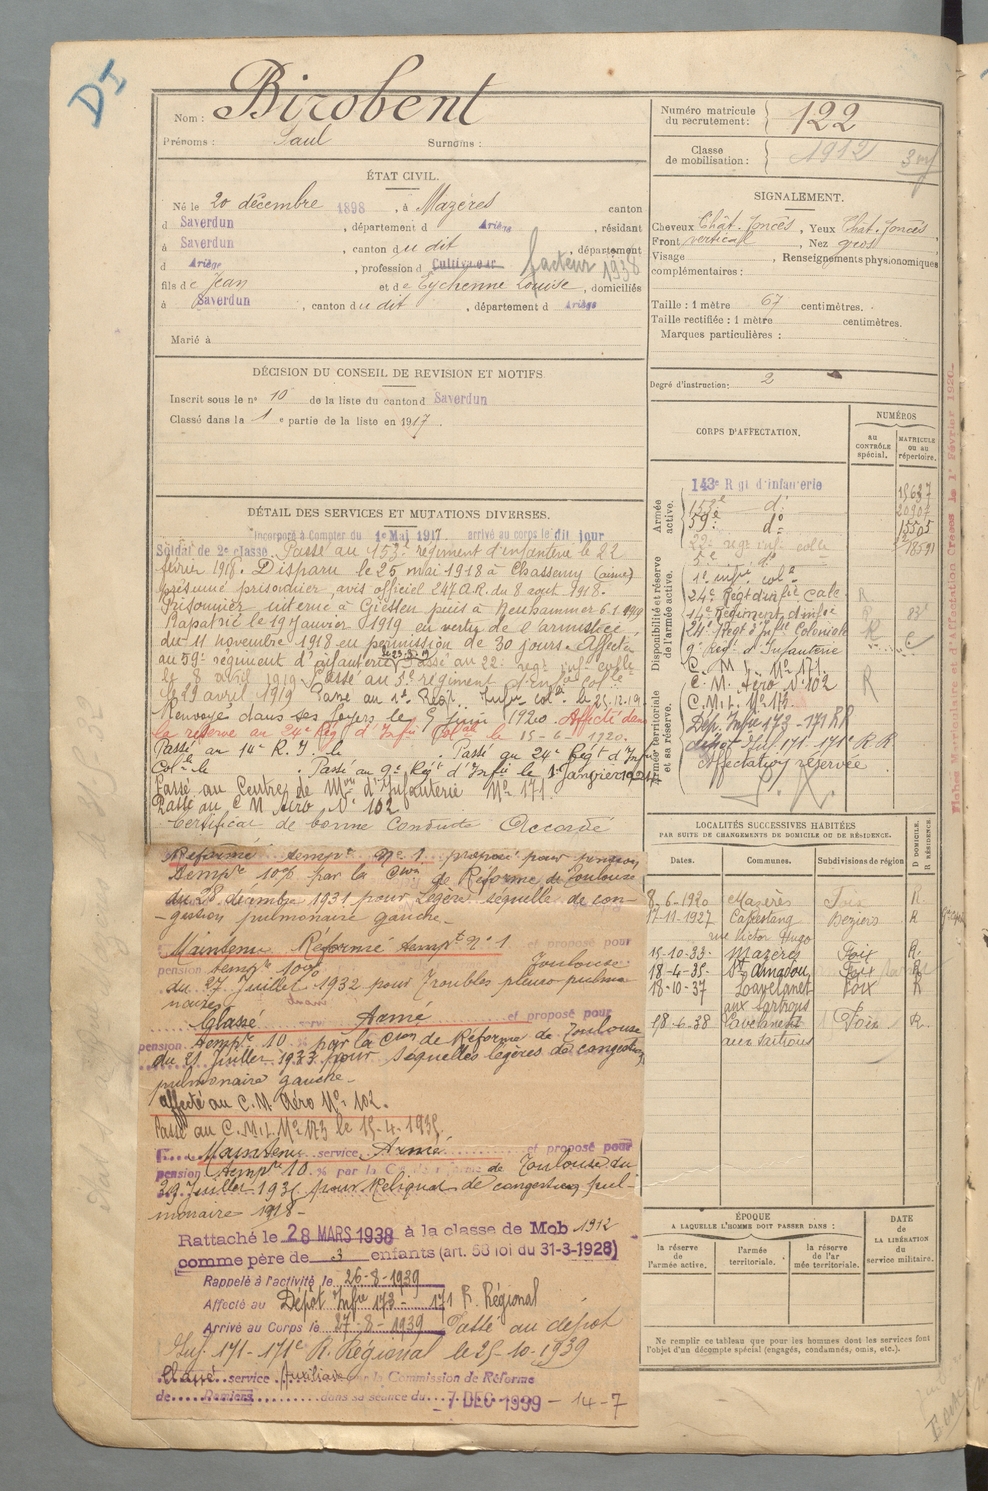 DI
Nom : Birobent
Prénoms : Paul Surnoms :
Numéro matricule du recrutement : 122
Classe de mobilisation : 1912 3 enf
ÉTAT CIVIL.
Né le 20 décembre 1898, à Mazères canton
d Saverdun, département d Ariège, résidant
à Saverdun, canton du dit, département
d Ariège, profession d Cultivateur facteur 1938
fils de Jean et de Eychenne Louise, domiciliés
à Saverdun, canton du dit, département d Ariège
Marié à
SIGNALEMENT.
Cheveux Chât. foncés, Yeux Chât. foncés,
Front vertical, Nez gros
Visage , Renseignements physionomiques
complémentaires :
Taille : 1 mètre 67 centimètres.
Taille rectifiée : 1 mètre centimètres.
Marques particulières :
Degré d'instruction : 2
DÉCISION DU CONSEIL DE REVISION ET MOTIFS
Inscrit sous le n° 10 de la liste du canton d Saverdun
Classé dans la 1e partie de la liste en 1917.
DÉTAIL DES SERVICES ET MUTATIONS DIVERSES.
Incorporé à Compter du 1er Mai 1917. arrivé au corps le dit jour
Soldat de 2e classe. Passé au 153e régiment d'infanterie le 22
février 1918. Disparu le 25 mai 1918 à Chassemy (aisne)
présumé prisonnier, avis officiel 247 A.R. du 8 aout 1918.
Prisonnier interné à Giessen puis à Neuhammer 6.1.1919
Rapatrié le 19 Janvier 1919 en vertu de l'armistice
du 11 novembre 1918 en permission de 30 jours. Affecté
au 59e régiment d'infanterie Passé au 22e regt infie colle
le 8 avril 1919 Passé au 5e régiment d'Infie Colle
le 29 avril 1919 Passé au 1er Regt Infie colle le 25.12.19
Renvoyé dans ses foyers le 5 Juin 1920 Affecté dans
la réserve au 24e Rég d'Infie Colale le 15-6-1920.
Passé au 14e R.I. le . Passé au 24e Régt d'Infie
Colle le . Passé au 9e Régt d'Infie le 1er Janvier 1924
Passé au Centre de Mon d'Infanterie No 171.
Passé au C M Aéro No 102
Certificat de bonne Conduite Accordé
Réformé tempre No 1 proposé pour pension
tempre 10% par la Con de Réforme de Toulouse
du 28 décembre 1931 pour légère séquelle de con-
-gestion pulmonaire gauche-
Maintenu Réformé tempre No 1 et proposé pour
pension tempre 10% Toulouse
du 27 Juillet 1932 pour Troubles pleuro pulmo
naires
Classé service Armé et proposé pour
pension tempre 10 % par la Con de Réforme de Toulouse
du 21 Juillet 1933 pour séquelles légères de congestion
pulmonaire gauche-
affecté au C.M. Aéro No 102.
Passé au C.M.I. No 173 le 15.4.1935.
Maintenu service Armé et proposé pour
pension tempre 10 % par la de Toulouse du
Juillet 193 pour Reliquat de congestion pul-
monaire 1918-
Rattaché le 28 MARS 1938 à la classe de Mob 1912
comme père de 3 enfants (art. 58 loi du 31-3-1928)
Rappelé à l'activité le 26-8-1939
Affecté au Dépot Infie 173 - 171 R. Régional
Arrivé au Corps le 27-8-1939 Passé au dépot
Inf. 171-171e R. Régional le 25-10-1939
Classé service Auxiliaire par la Commission de Réforme
de dans sa séance du 7 DEC 1939 - 14-7
CORPS D'AFFECTATION.
NUMÉROS
AU CONTRÔLE spécial.
MATRICULE OU AU répertoire.
Armée active.
Disponibilité et réserve de l'armée active.
Armée territoriale et sa réserve.
143e Rgt d'infanterie
153e do
59e do 15505
22e regt infie colle
5e do
1er infie cole
24e Régt d'infie cale R
14e Régiment d'infie R
24e Régt d'Infie Coloniale R
9e Régt d'Infanterie
C. M. I. No 171.
C. M. Aéro No 102 R
C.M.I. No 173.
Dép. Infie 173 - 171 RR
dépot Inf. 171 - 171e R.R.
Affectation réservée
LOCALITÉS SUCCESSIVES HABITÉES
PAR SUITE DE CHANGEMENTS DE DOMICILE OU DE RÉSIDENCE.
Dates. Communes. Subdivisions de région D DOMICILE. R RÉSIDENCE
8-6-1920 Mazères Foix R.
17-11-1927 Capestang Beziers R
rue Victor Hugo
15-10-33 Mazères Foix R.
18-4-35 St Amadou Foix R
18-10-37 Lavelanet Foix R
aux Sartrous
18-6-38 Lavelanet Foix R.
aux Sartrous
ÉPOQUE
A LAQUELLE L'HOMME DOIT PASSER DANS :
DATE DE LA LIBÉRATION du service militaire.
la réserve de l'armée active.
l'armée territoriale.
la réserve de l'armée territoriale.
Ne remplir ce tableau que pour les hommes dont les services font
l'objet d'un décompte spécial (engagés, condamnés, omis, etc.).
Fiches Matriculaire et d'Affectation Créées le 1er Février 192